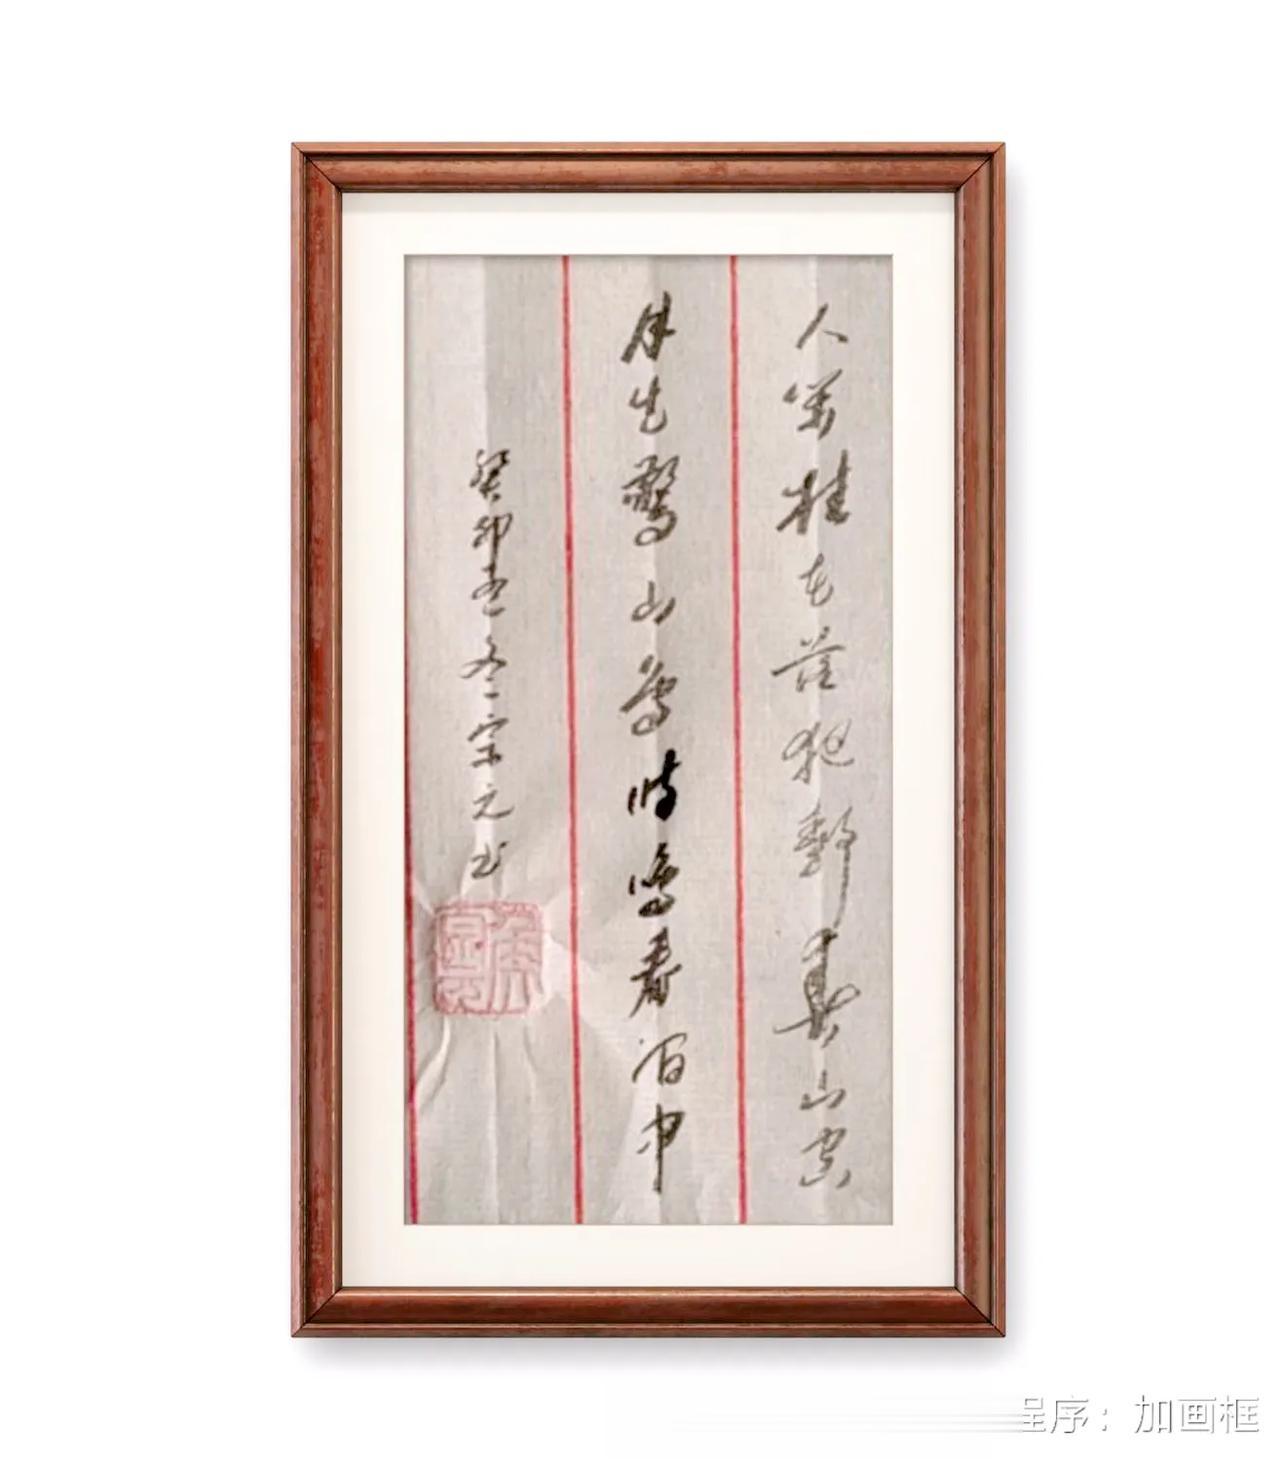 人闲桂花落夜静春山空
月出驚山鸟时鸣春涧中
癸卯孟冬宗元书
程序：加画框